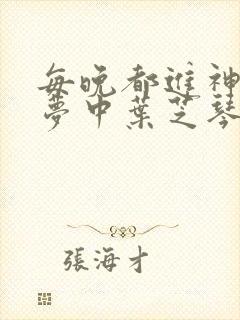 每晚都進神
夢中葉芝琴
張海才